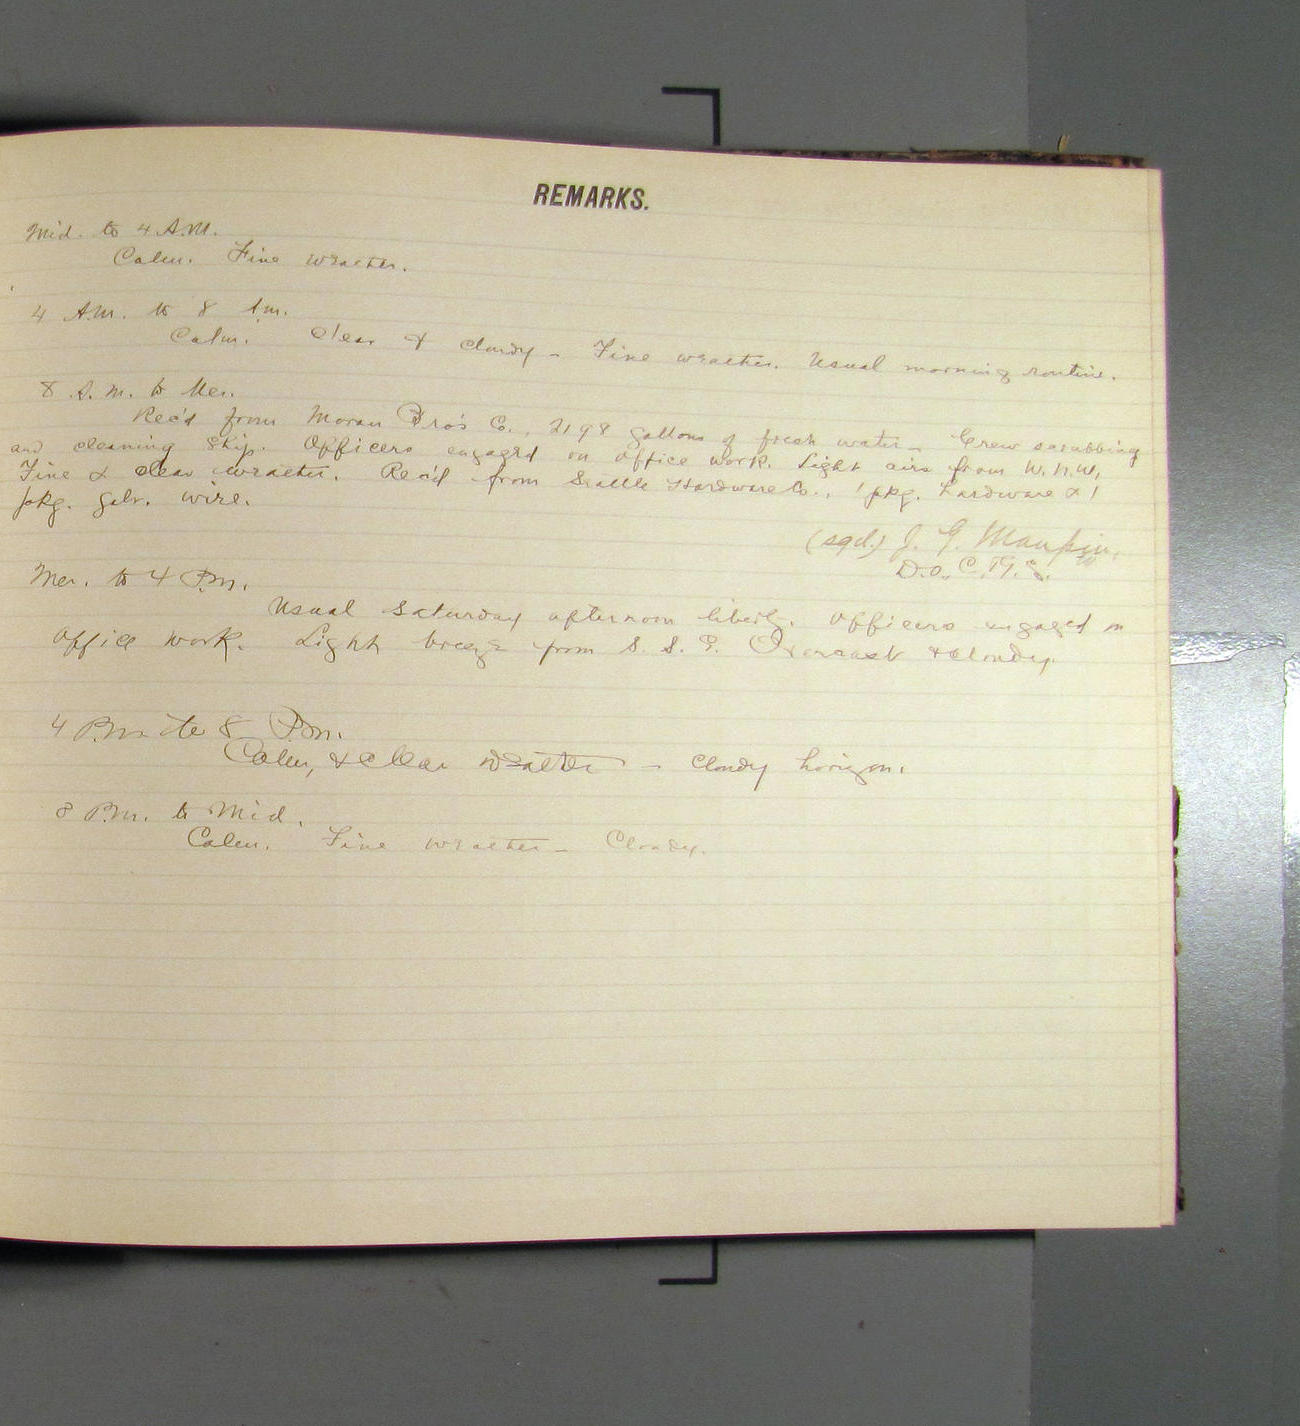 REMARKS.
Mid. to 4 A.M.
Calm. Fine weather.
4 A.M. to 8 A.m.
Calm. Clear & cloudy - Fine weather. Usual morning routine.
8 A.M. to Mer.
Rec'd from Moran Bro's Co., 2198 gallons of fresh water - Crew scrubbing
and cleaning ship. Officers engaged on office work. Light airs from W.N.W,
Fine & clear weather. Rec'd from Seattle Hardware Co., 1 pkg. hardware & 1
pkg. galv. wire.
(sgd.) J. G. Maupin,
Mer. to 4 P.m.
Usual Saturday afternoon liberty. Officers engaged on
Office work. Light breeze from S. S. E. Overcast & cloudy.
4 P.m. to 8 P.m.
Calm, & clear weather - cloudy horizon.
8 P.m. to Mid.
Calm. Fine weather - Cloudy.